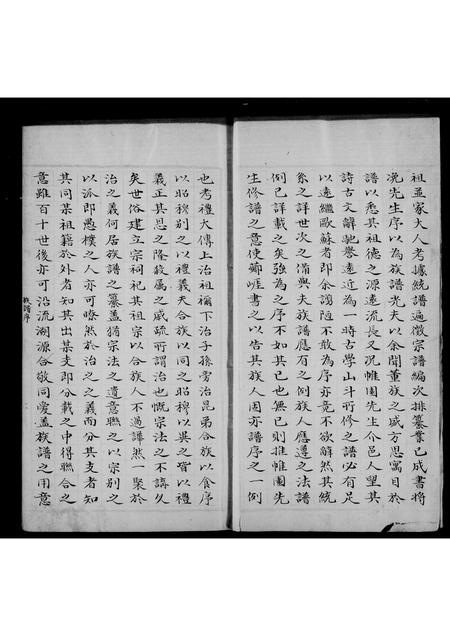 祖孟家大人考據統譜遍徵宗譜編次排纂業已成書將
先生序以為族譜光夫以余聞董族之盛方思寓目於
譜以悉其祖德之源遠流長又况帷園先生介邑人望其
詩古文辭馳譽遠近為一時古學山斗所修之譜必有足
以遠繼歐蘇者即余謭陋不敢為序亦竟不欲辭然其統
系之詳世次之備與夫族譜應有之例族人應遵之法譜
例已詳載之矣強為之序不如其已也無已則推帷園先
生修譜之意使鄉崕書之以告其族人固亦譜序之一例
也考禮大傳上治祖禰下治子孫旁治昆弟合族以食序
以昭穆別之以禮義夫合族以同之昭穆以異之皆以禮
義正其恩之隆殺屬之戚疏所謂治也慨宗法之不講久
矣世俗建立宗祠祀其祖宗以合族人不過譁然一聚於
治之義何居族譜之纂蓋猶宗法之遺意聯之以宗別之
以派即愚樸之人亦可瞭然於治之之義而分其支者知
其同某祖籍於外者知其出某支即分載之中得聯合之
意雖百十世後亦可沿流溯源合敬同愛蓋族譜之用意
族譜序